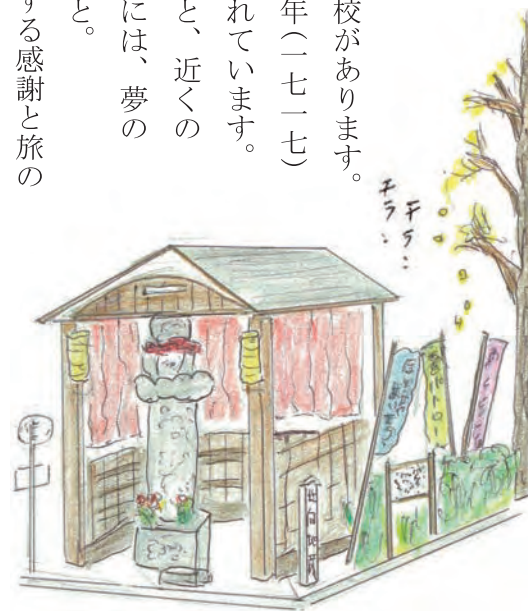 校があります。
年（一七一七）
れています。
と、近くの
には、夢の
と。
する感謝と旅の
チラ：
チラ：